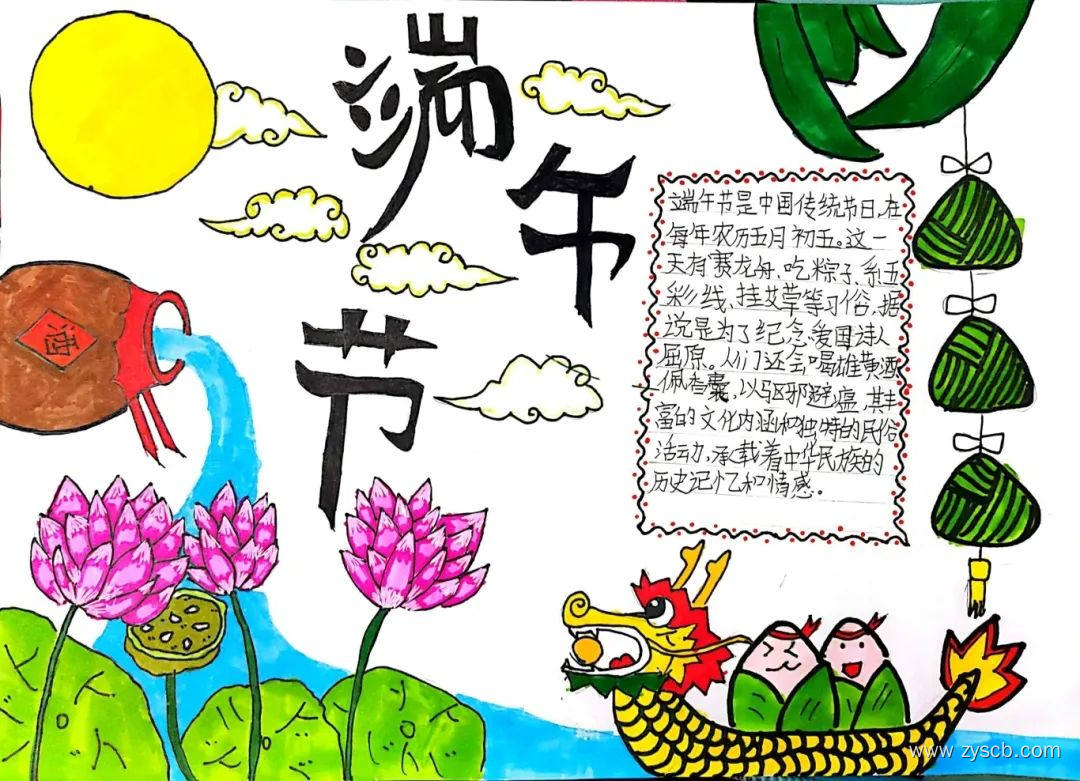 端午节
酒
端午节是中国传统节日,在
每年农历五月初五。这一
天有赛龙舟、吃粽子、系五
彩线、挂艾草等习俗,据
说是为了纪念爱国诗人
屈原。人们还会喝雄黄酒
佩香囊,以驱邪避瘟,其丰
富的文化内涵和独特的民俗
活动,承载着中华民族的
历史记忆和情感。
www.zyscb.com